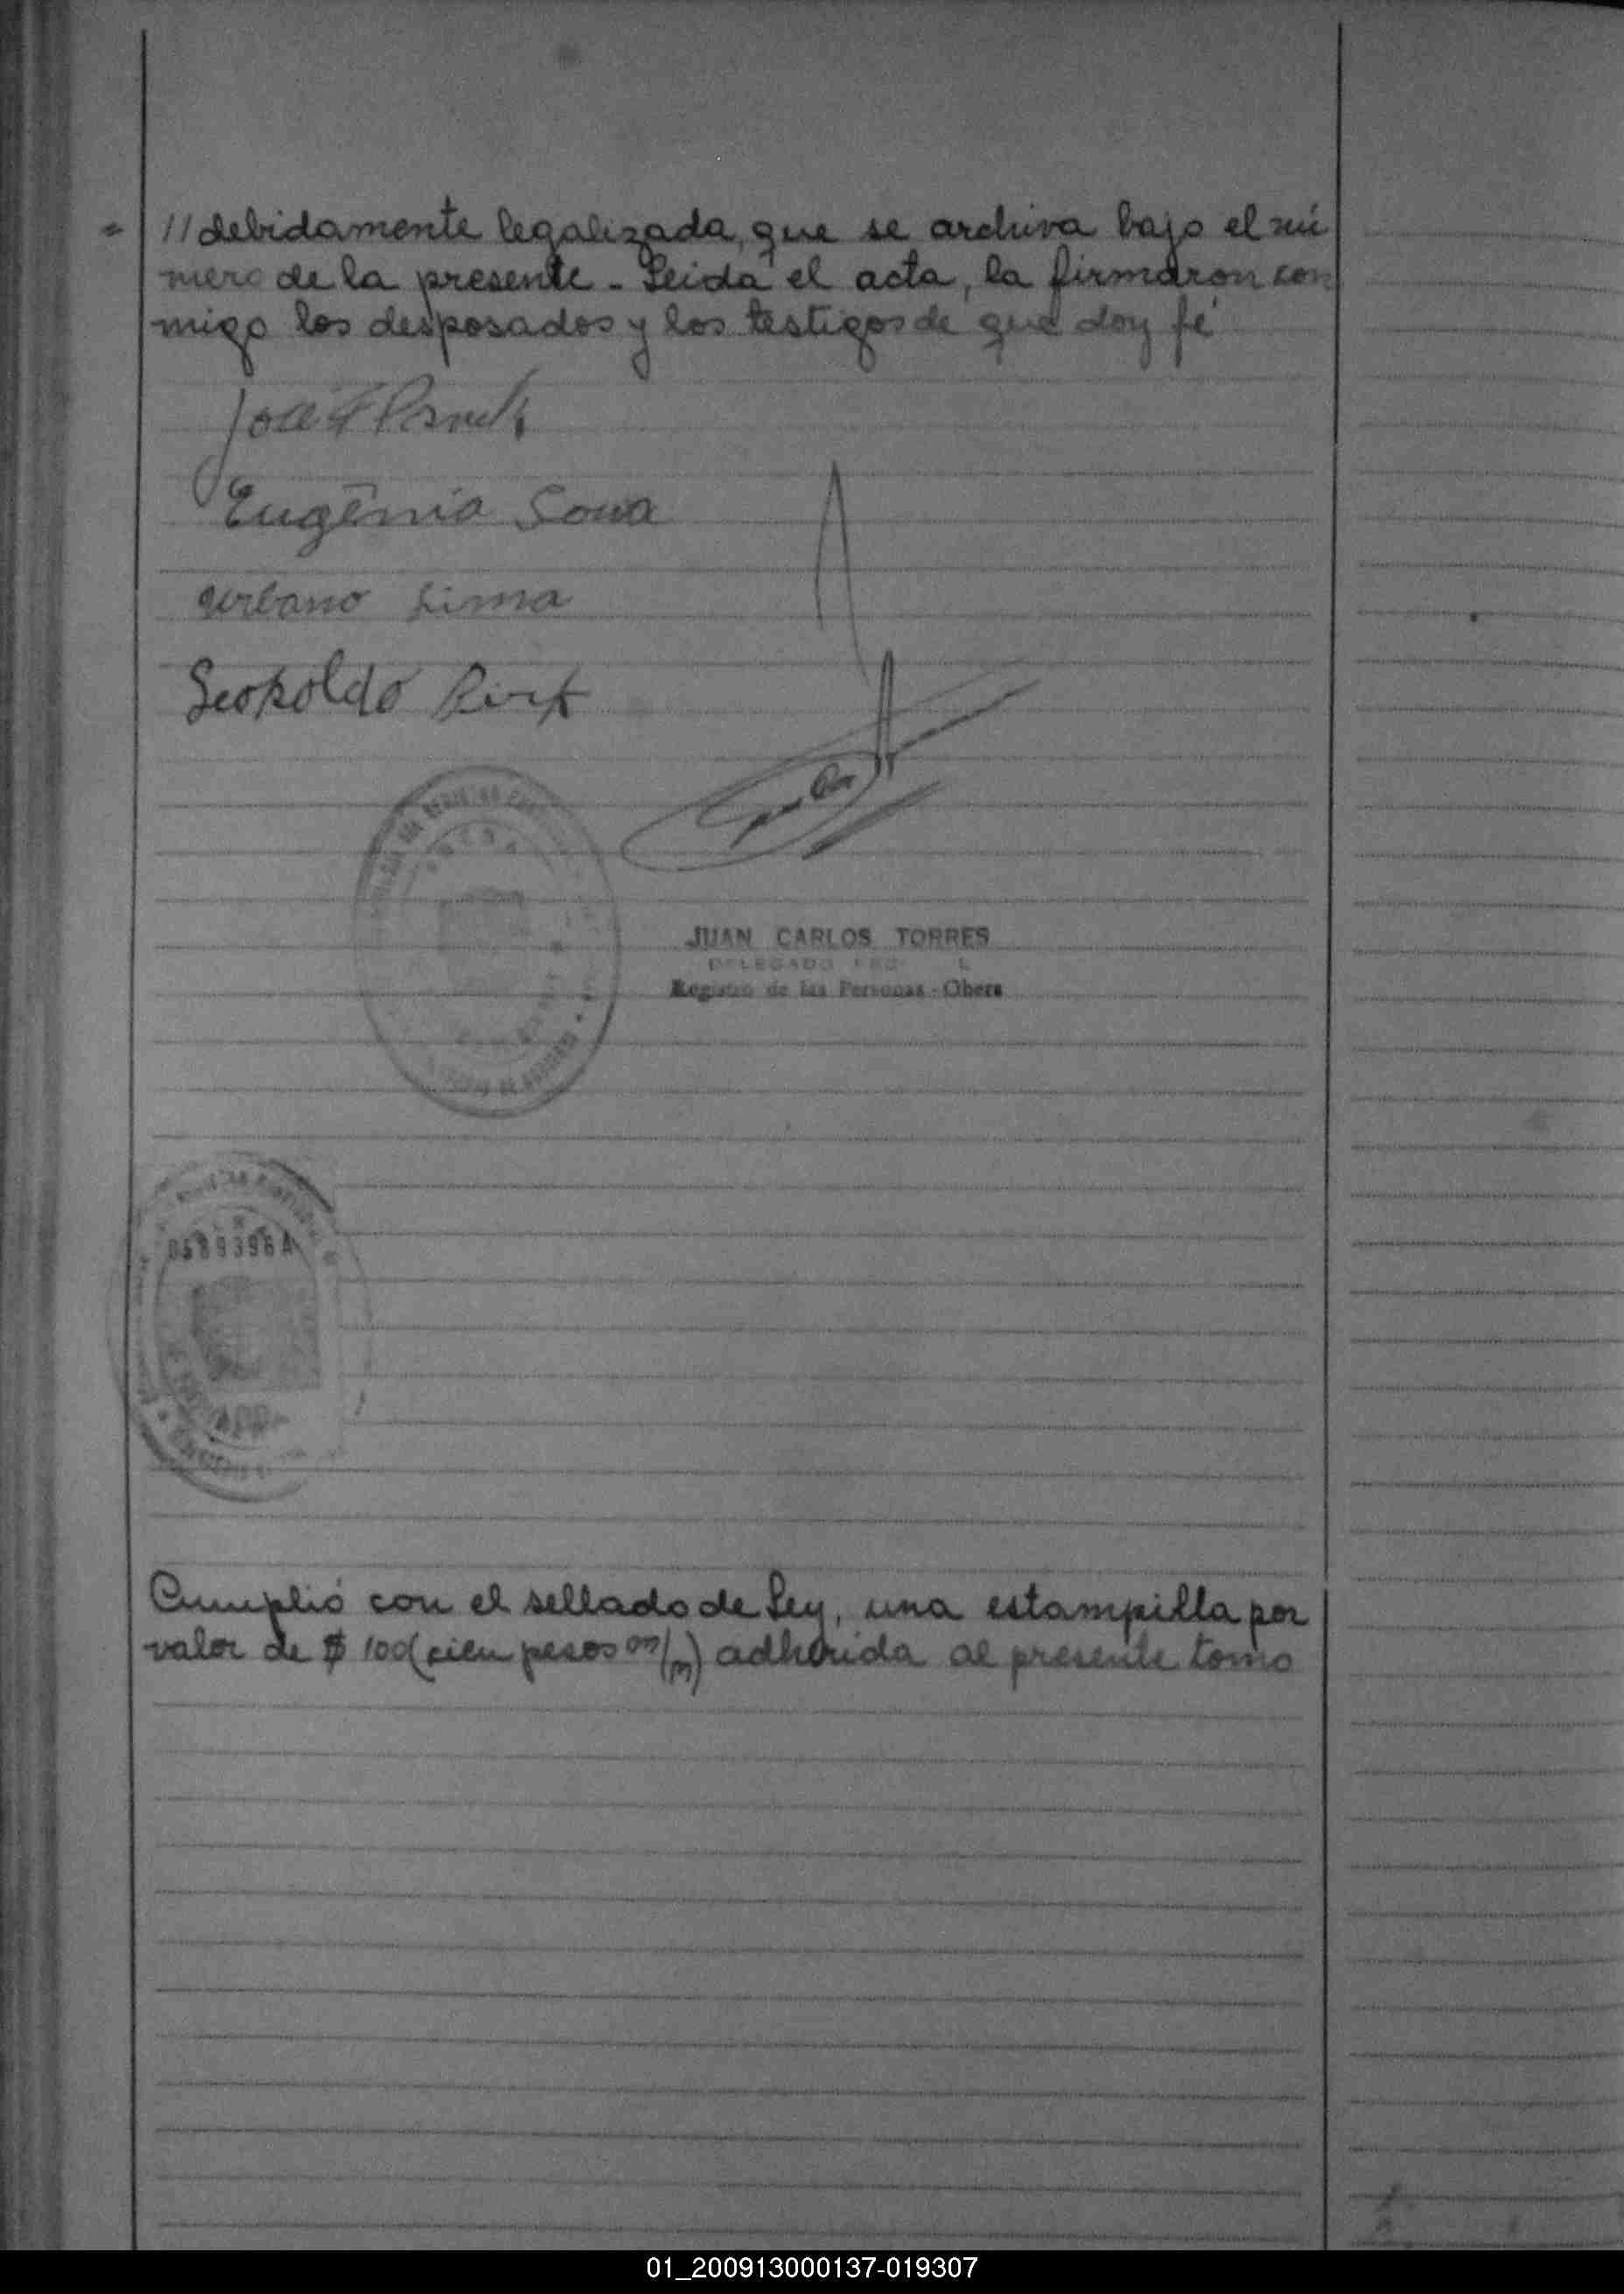 //debidamente legalizada, que se archiva bajo el nú
mero de la presente - Leida el acta, la firmaron con
migo los desposados y los testigos de que doy fé
José
Eugênia Sowa
Urbano Lima
Leopoldo
JUAN CARLOS TORRES
DELEGADO
Registro de las Personas - Obera
Cumplió con el sellado de Ley, una estampilla por
valor de $ 100 (cien pesos m/m) adherida al presente tomo
01_200913000137-019307